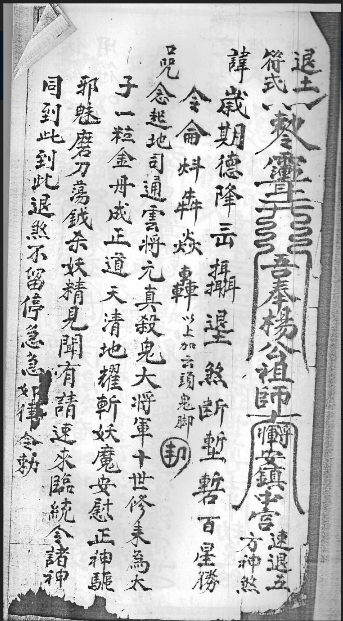 退土
符式
敕令靈 吾奉楊公祖師 安鎮中宮 速退五
方神煞
諱 歲期德降 攝退煞断 百星勝
令 犇焱轟 以上加雲頭鬼脚
口咒 念起地司通雲將元真殺鬼大將軍十世修來為太
子一粒金丹成正道天清地耀斬妖魔安慰正神驅
邪魅磨刀蕩鉞杀妖精見聞有請速來臨統令諸神
同到此到此退煞不留停急急如律令勅